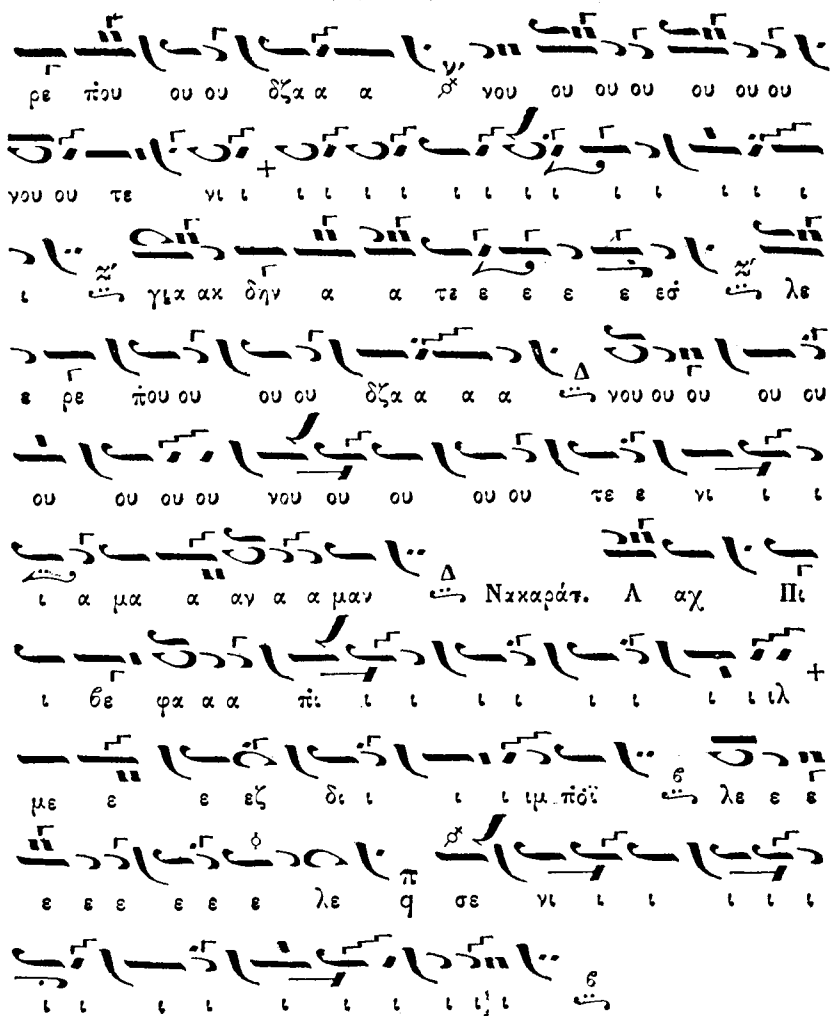 ρε π̇ου ου ου δζα α α νου ου ου ου ου ου ου
νου ου τε νι ι ι ι ι ι ι ι ι ι ι ι ι ι ι
ι για ακ δην α α τε ε ε ε ε εσ̇ λε
ε ρε π̇ου ου ου ου δζα α α α Δ νου ου ου ου ου
ου ου ου ου νου ου ου ου ου τε ε νι ι ι
ι α μα α αν α α μαν Δ Νακαράτ. Α αχ Πι
ι βε φα α α π̇ι ι ι ι ι ι ι ι ι ιλ
με ε ε εζ δι ι ι ι ιμ π̇οϊ β λε ε ε
ε ε ε ε ε ε λε π q σε νι ι ι ι ι ι
ι ι ι ι ι ι ι ι ι ι β